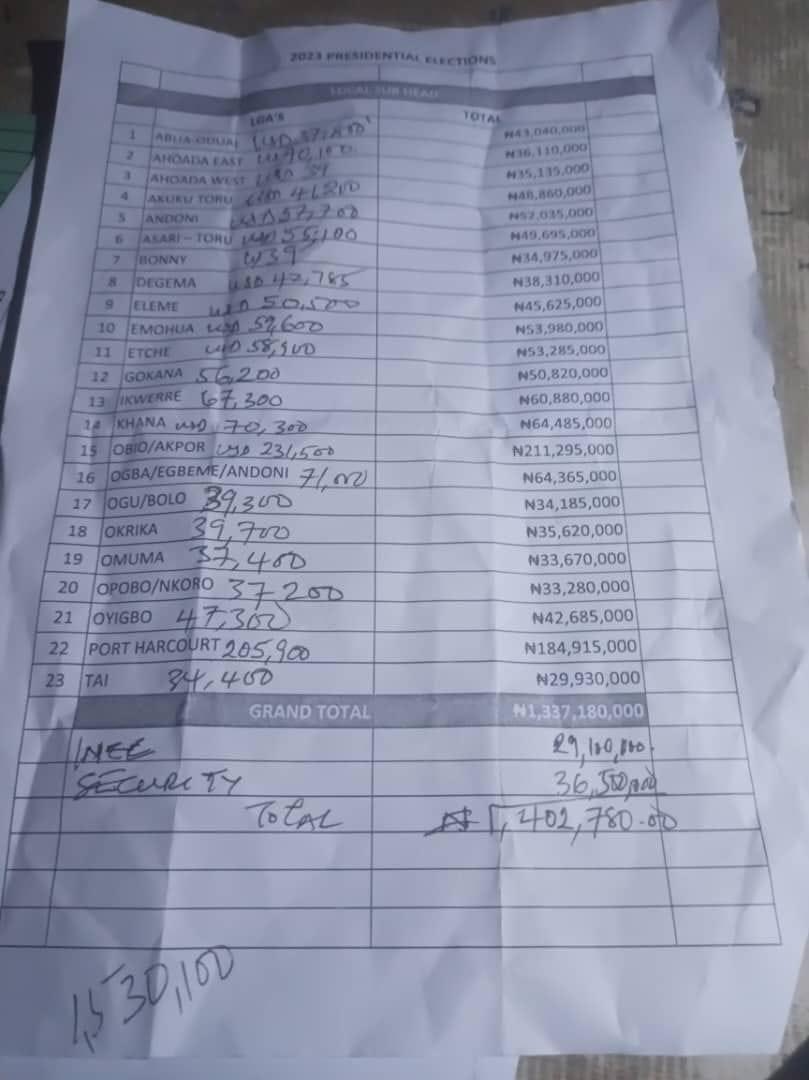 2023 PRESIDENTIAL ELECTIONS
LOCAL SUB HEAD
LGA'S TOTAL
1 ABUA-ODUAL USD ₦43,040,000
2 AHOADA EAST 40,100 ₦36,110,000
3 AHOADA WEST 39 ₦35,135,000
4 AKUKU TORU ₦48,860,000
5 ANDONI USD 57,700 ₦52,035,000
6 ASARI - TORU USD 55,100 ₦49,695,000
7 BONNY 39 ₦34,975,000
8 DEGEMA USD 42,785 ₦38,310,000
9 ELEME USD 50,500 ₦45,625,000
10 EMOHUA USD 59,600 ₦53,980,000
11 ETCHE USD 58,900 ₦53,285,000
12 GOKANA 56,200 ₦50,820,000
13 IKWERRE 67,300 ₦60,880,000
14 KHANA USD 70,300 ₦64,485,000
15 OBIO/AKPOR USD 231,500 ₦211,295,000
16 OGBA/EGBEME/ANDONI 71,000 ₦64,365,000
17 OGU/BOLO 39,300 ₦34,185,000
18 OKRIKA 39,700 ₦35,620,000
19 OMUMA 37,400 ₦33,670,000
20 OPOBO/NKORO 37200 ₦33,280,000
21 OYIGBO 47,300 ₦42,685,000
22 PORT HARCOURT 205,900 ₦184,915,000
23 TAI 34,400 ₦29,930,000
GRAND TOTAL ₦1,337,180,000
INEC 29,100,000
SECURITY 36,500,000
TOTAL ₦1,402,780.00
1,530,100